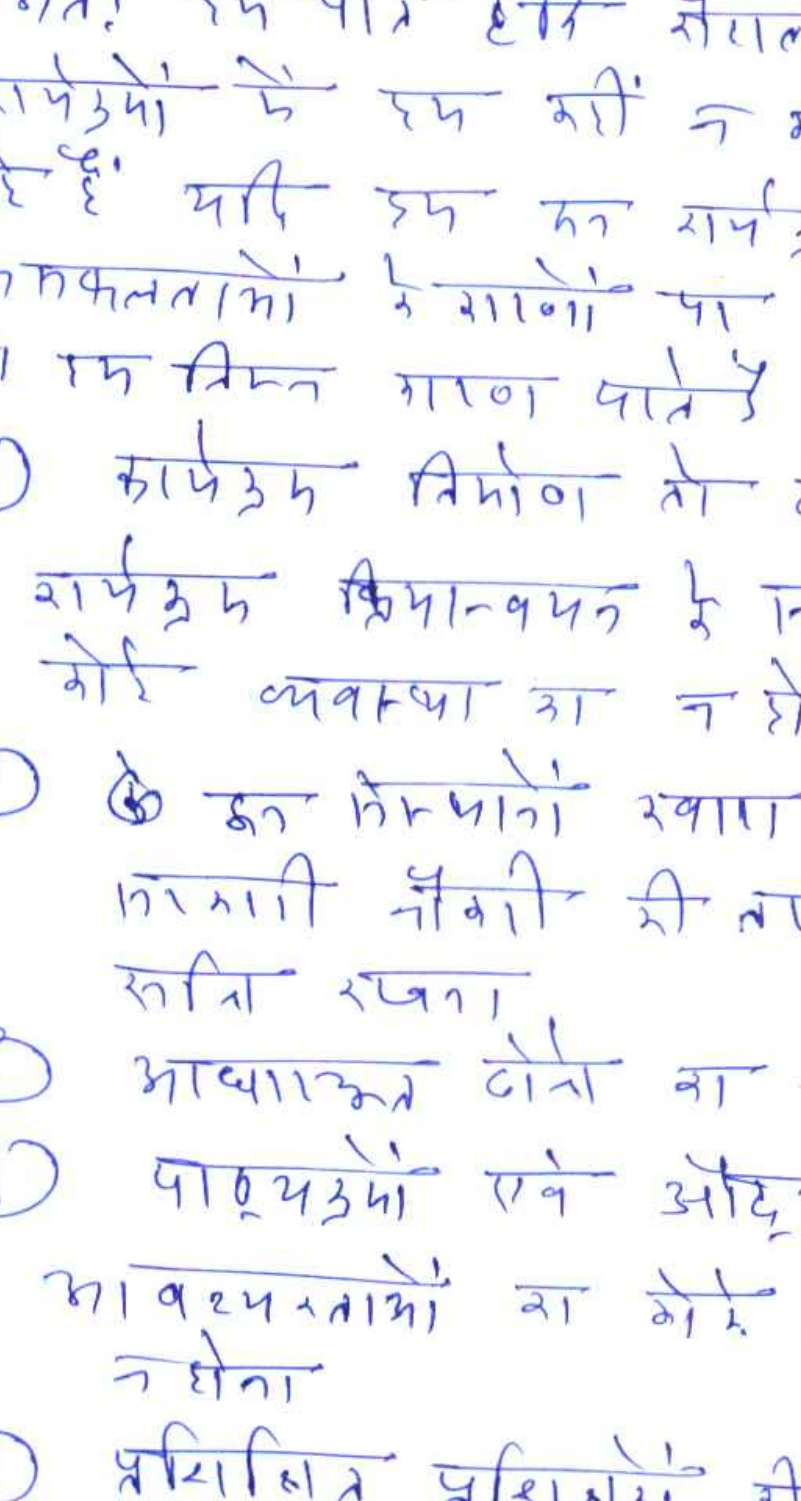 कार्यक्रमों में हम कहीं न
रहे हैं यदि हम इन कार्यक्र
असफलताओं के कारणों पा
हम निम्न कारण पाते हैं
कार्यक्रम निर्माण तो
कार्यक्रम क्रियान्वयन के
कोई व्यवस्था का न हो
इन संस्थानों द्वारा
सरकारी नौकरी की
रूचि रखना
आधारभूत ढांचे का
पाठ्यक्रमों एवं औद्
आवश्यकताओं का कोई
न होना
प्रशिक्षित प्रशिक्षकों की